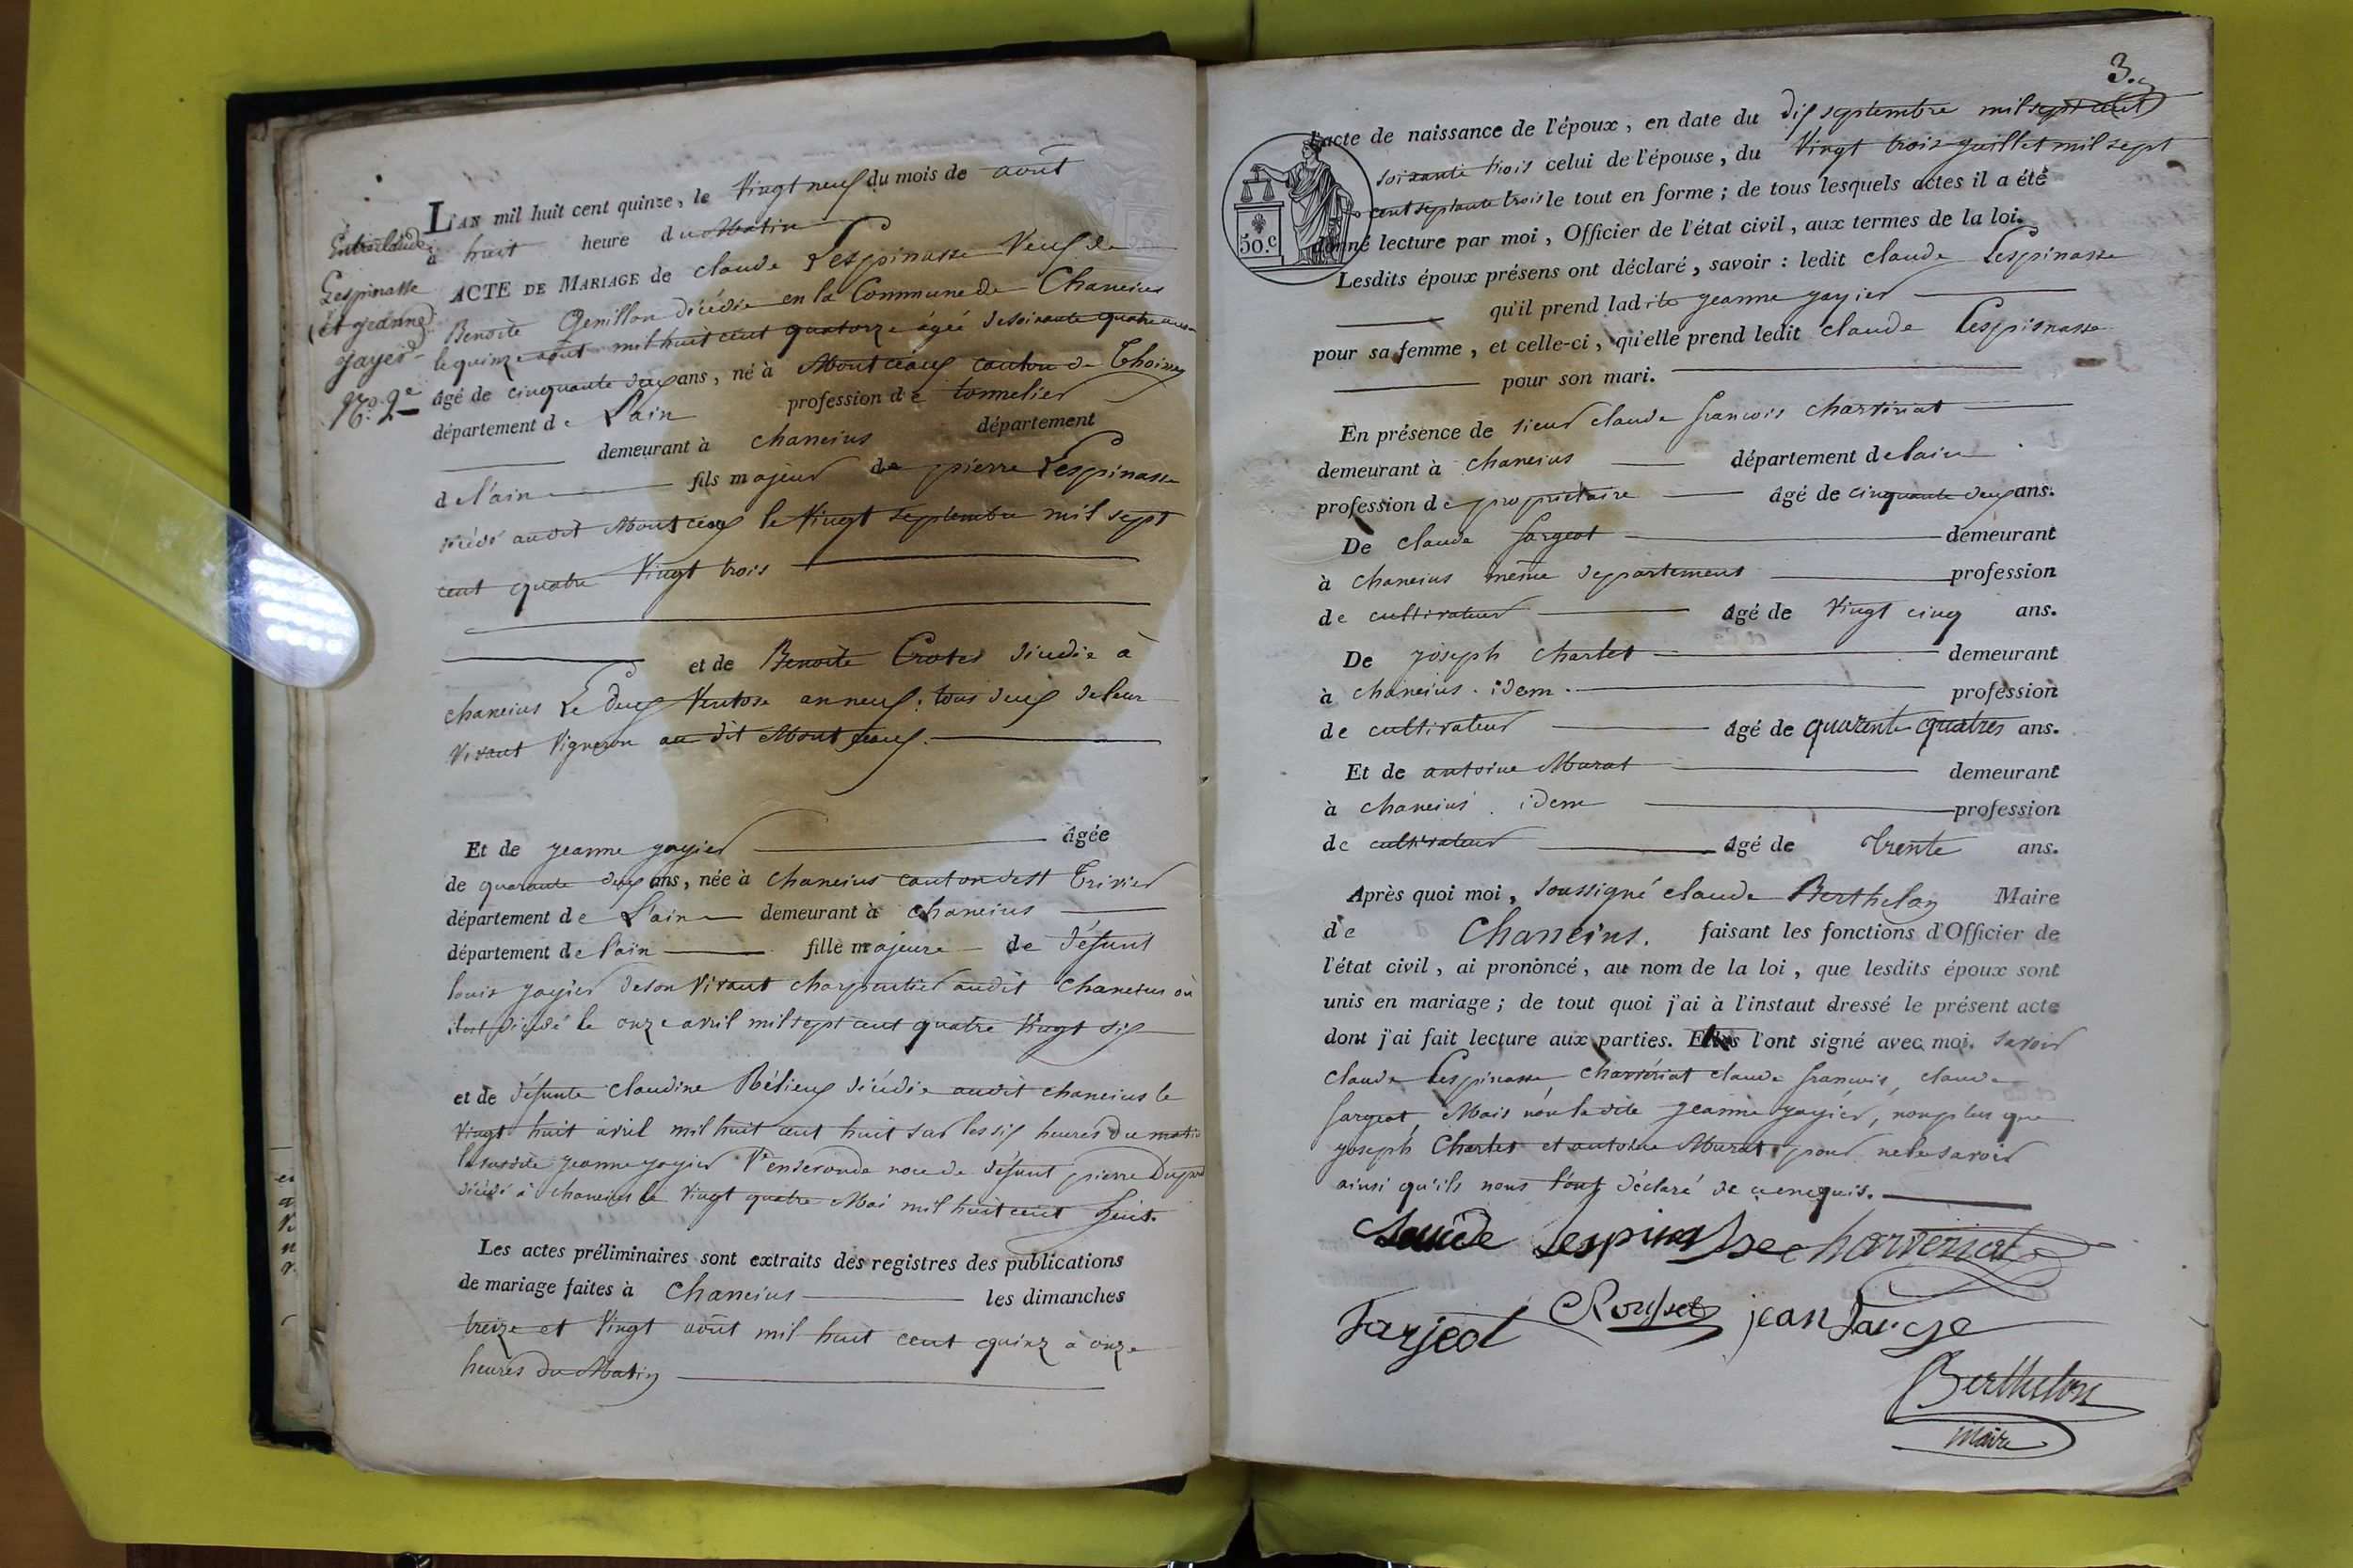 Entre Claude
Lespinasse
(et jeanne)
jayer
No. 2e
L'AN mil huit cent quinze, le Vingt neuf du mois de août
à huit heure du Matin
ACTE DE MARIAGE de claude Lespinasse Veuf de
Benoite Genillon décédée en la Commune de Chaneins
le quinze août mil huit cent quatorze âgée de soixante quatre ans
âgé de cinquante deux ans, né à Montceaux canton de Thoissey
département de L'ain profession de tonnelier
demeurant à chaneins département
de l'ain fils majeur de pierre Lespinasse
décédé audit Montceaux le Vingt septembre mil sept
cent quatre Vingt trois
et de Benoite Crotet décédée à
chaneins Le deux Ventose an neuf, tous deux de leur
Vivant Vigneron au dit Montceaux.
Et de jeanne jayier âgée
de quarante deux ans, née à chaneins canton de St Trivier
département de L'ain demeurant à chaneins
département de l'ain fille majeure de défunt
louis jayier de son Vivant charpentier audit Chaneins où
il est décédé le onze avril mil sept cent quatre Vingt six
et de défunte Claudine Rélieux décédée audit chaneins le
Vingt huit avril mil huit cent huit sur les six heures du matin
la susdite jeanne jayier Ve en seconde noce de défunt pierre
décédé à chaneins le Vingt quatre Mai mil huit cent huit.
Les actes préliminaires sont extraits des registres des publications
de mariage faites à Chaneins les dimanches
treize et Vingt août mil huit cent quinz à onze
heures du Matin
3.
l'acte de naissance de l'époux, en date du dix septembre mil sept cent
soixante trois celui de l'épouse, du Vingt trois juillet mil sept
cent septante trois le tout en forme; de tous lesquels actes il a été
50.c donné lecture par moi, Officier de l'état civil, aux termes de la loi.
Lesdits époux présens ont déclaré, savoir: ledit claude Lespinasse
qu'il prend ladite jeanne jayier
pour sa femme, et celle-ci, qu'elle prend ledit claude Lespinasse
pour son mari.
En présence de sieur claude francois charvériat
demeurant à chaneins département de lain
profession de propriétaire âgé de cinquante deux ans.
De claude fargeot demeurant
à chaneins même département profession
de cultivateur âgé de Vingt cinq ans.
De joseph Charlet demeurant
à chaneins. idem. profession
de cultivateur âgé de quarente quatres ans.
Et de antoine Murat demeurant
à chaneins. idem profession
de cultivateur âgé de Trente ans.
Après quoi moi, soussigné claude Berthelon Maire
de Chaneins. faisant les fonctions d'Officier de
l'état civil, ai prononcé, au nom de la loi, que lesdits époux sont
unis en mariage; de tout quoi j'ai à l'instaut dressé le présent acte
dont j'ai fait lecture aux parties. Elles l'ont signé avec moi. savoir
claude Lespinasse, charvériat claude francois, claude
fargeot, Mais non la dite jeanne jayier, nonplus que
joseph Charlet et antoine Murat pour ne le savoir
ainsi qu'ils nous l'ont déclaré de ce enequis.
claude Lespinasse charveriat
Farjeot Rousset jean Farge
Berthelon
Maire